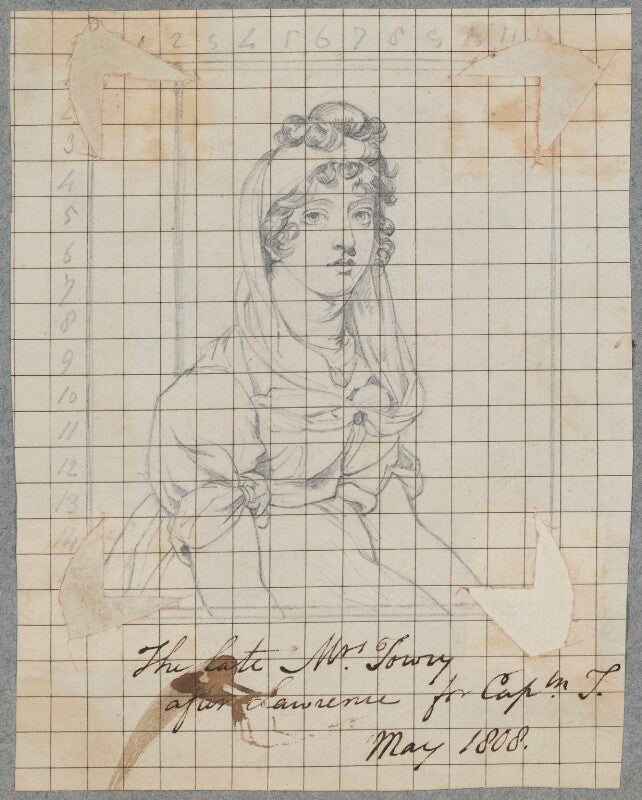 1 2 3 4 5 6 7 8 9 10 11
2
3
4
5
6
7
8
9
10
11
12
13
14
The late Mrs. Towry
after Lawrence for Captn T.
May 1808.